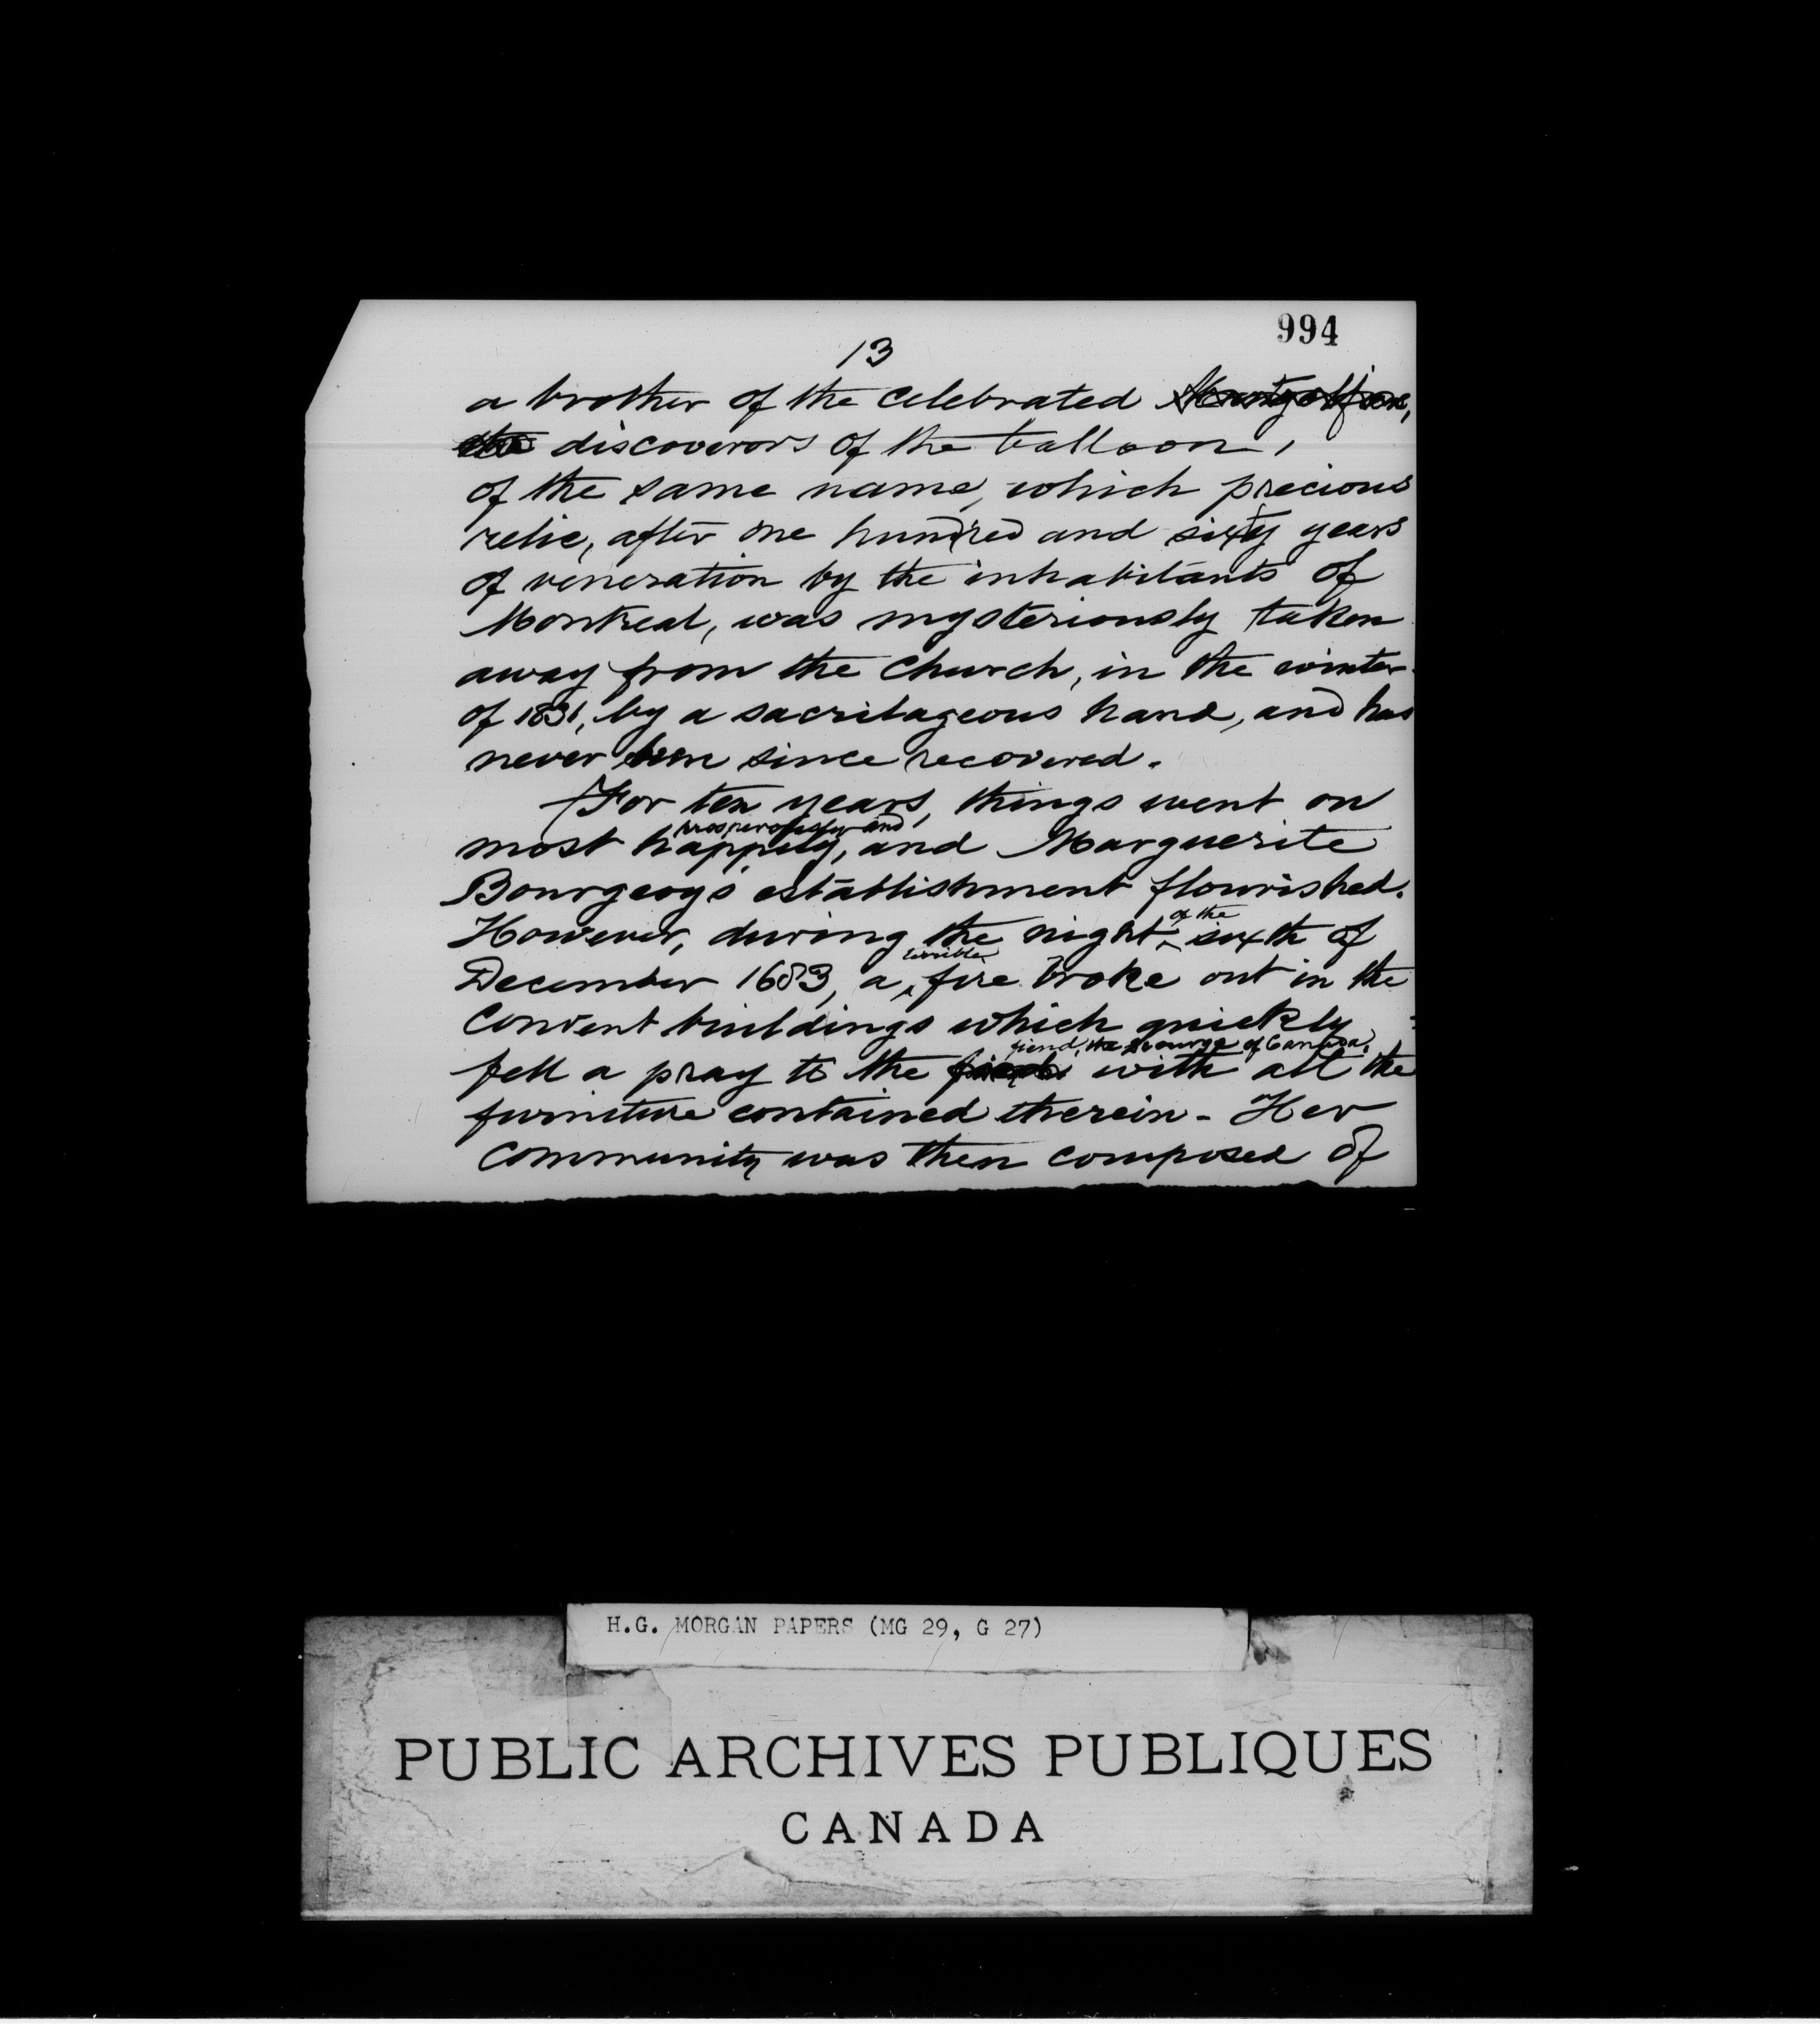 994
13
a brother of the celebrated Montgolfier,
the discoverors of the balloon,
of the same name, which precious
relic, after one hundred and sixty years
of veneration by the inhabitants of
Montreal, was mysteriously taken
away from the church, in the winter
of 1831, by a sacrilageous hand, and has
never been since recovered.
For ten years, things went on
prosperously and
most happily, and Marguerite
Bourgeoy's establishment flourished.
of the
However, during the night sixth of
terrible
December 1683, a fire broke out in the
convent buildings which quickly
fiend, the scourge of Canada,
fell a pray to the with all the
furniture contained therein. Her
community was then composed of
H.G. MORGAN PAPERS (MG 29, G 27)
PUBLIC ARCHIVES PUBLIQUES
CANADA